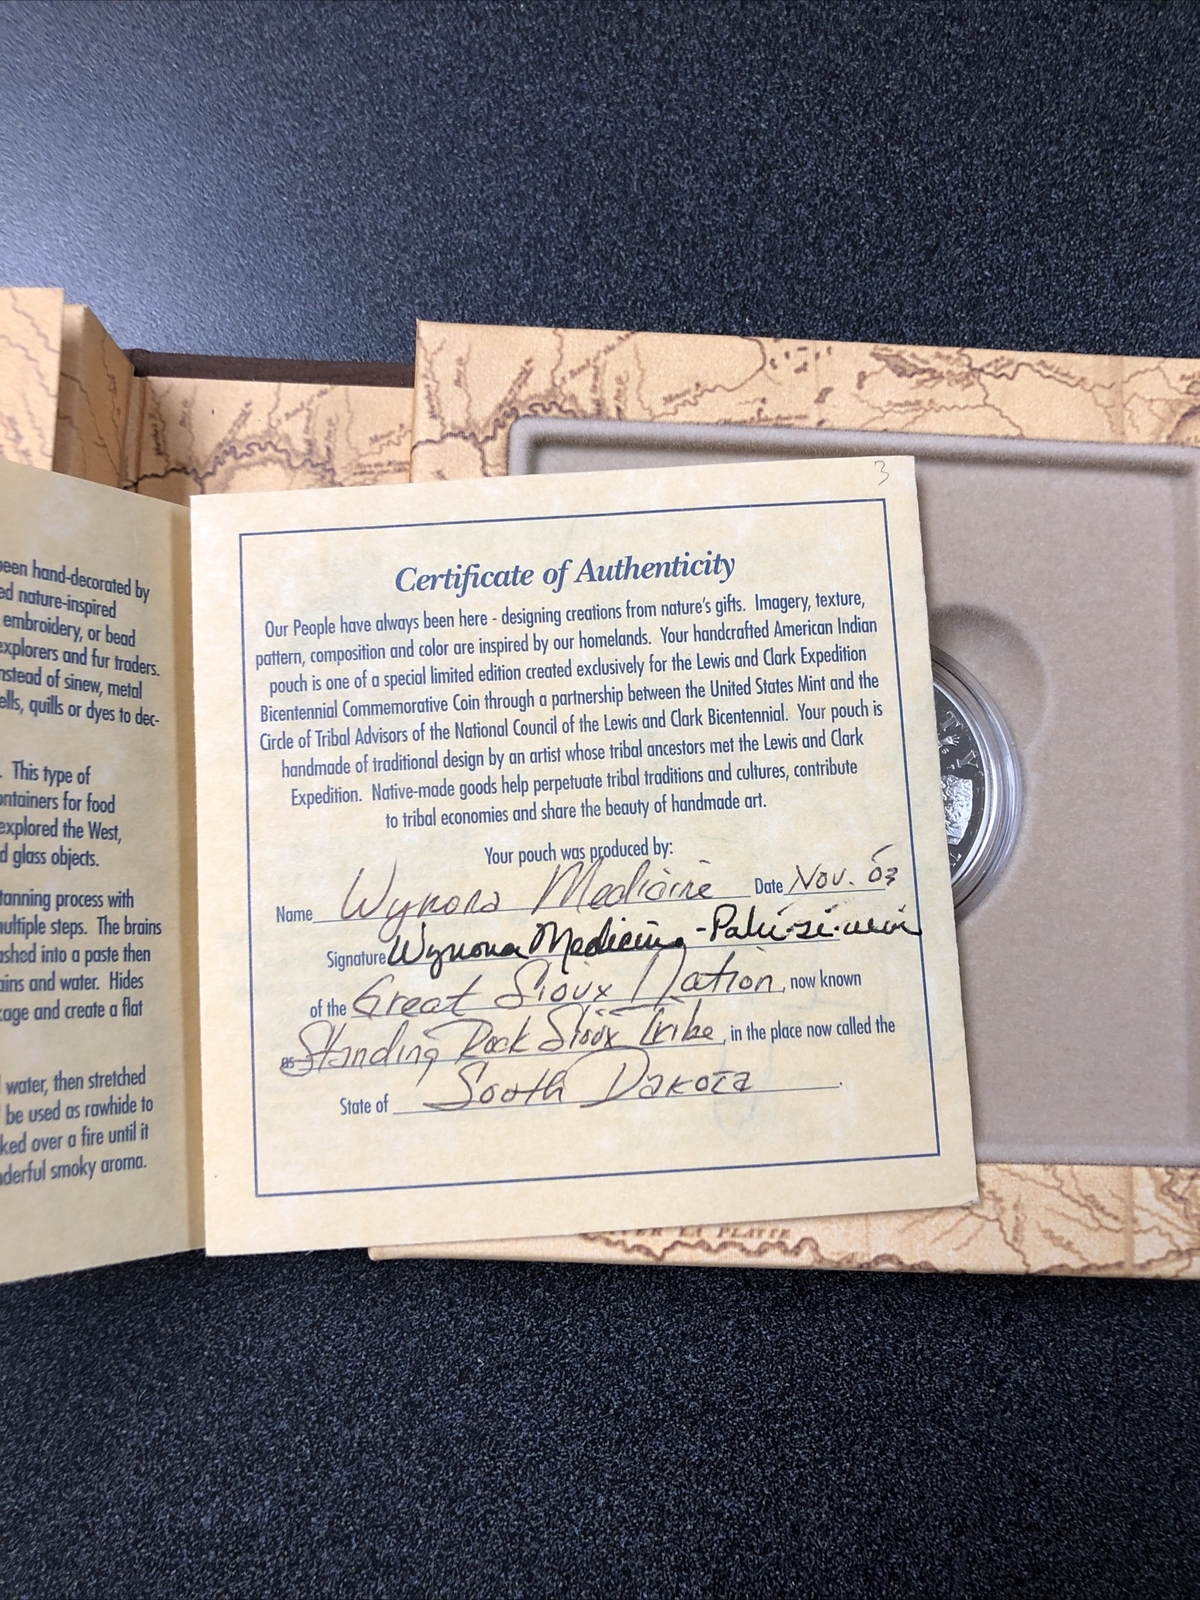 been hand-decorated by
ed nature-inspired
embroidery, or bead
explorers and fur traders.
nstead of sinew, metal
ells, quills or dyes to dec-
. This type of
ontainers for food
explored the West,
d glass objects.
tanning process with
multiple steps. The brains
ashed into a paste then
ains and water. Hides
kage and create a flat
water, then stretched
be used as rawhide to
ked over a fire until it
nderful smoky aroma.
3
Certificate of Authenticity
Our People have always been here - designing creations from nature's gifts. Imagery, texture,
pattern, composition and color are inspired by our homelands. Your handcrafted American Indian
pouch is one of a special limited edition created exclusively for the Lewis and Clark Expedition
Bicentennial Commemorative Coin through a partnership between the United States Mint and the
Circle of Tribal Advisors of the National Council of the Lewis and Clark Bicentennial. Your pouch is
handmade of traditional design by an artist whose tribal ancestors met the Lewis and Clark
Expedition. Native-made goods help perpetuate tribal traditions and cultures, contribute
to tribal economies and share the beauty of handmade art.
Your pouch was produced by:
Name Wynona Medicine Date Nov. 03
Signature Wynona Medicine -
of the Great Sioux Nation, now known
as Standing Rock Sioux Tribe, in the place now called the
State of South Dakota.
T Y
LA PLATTE